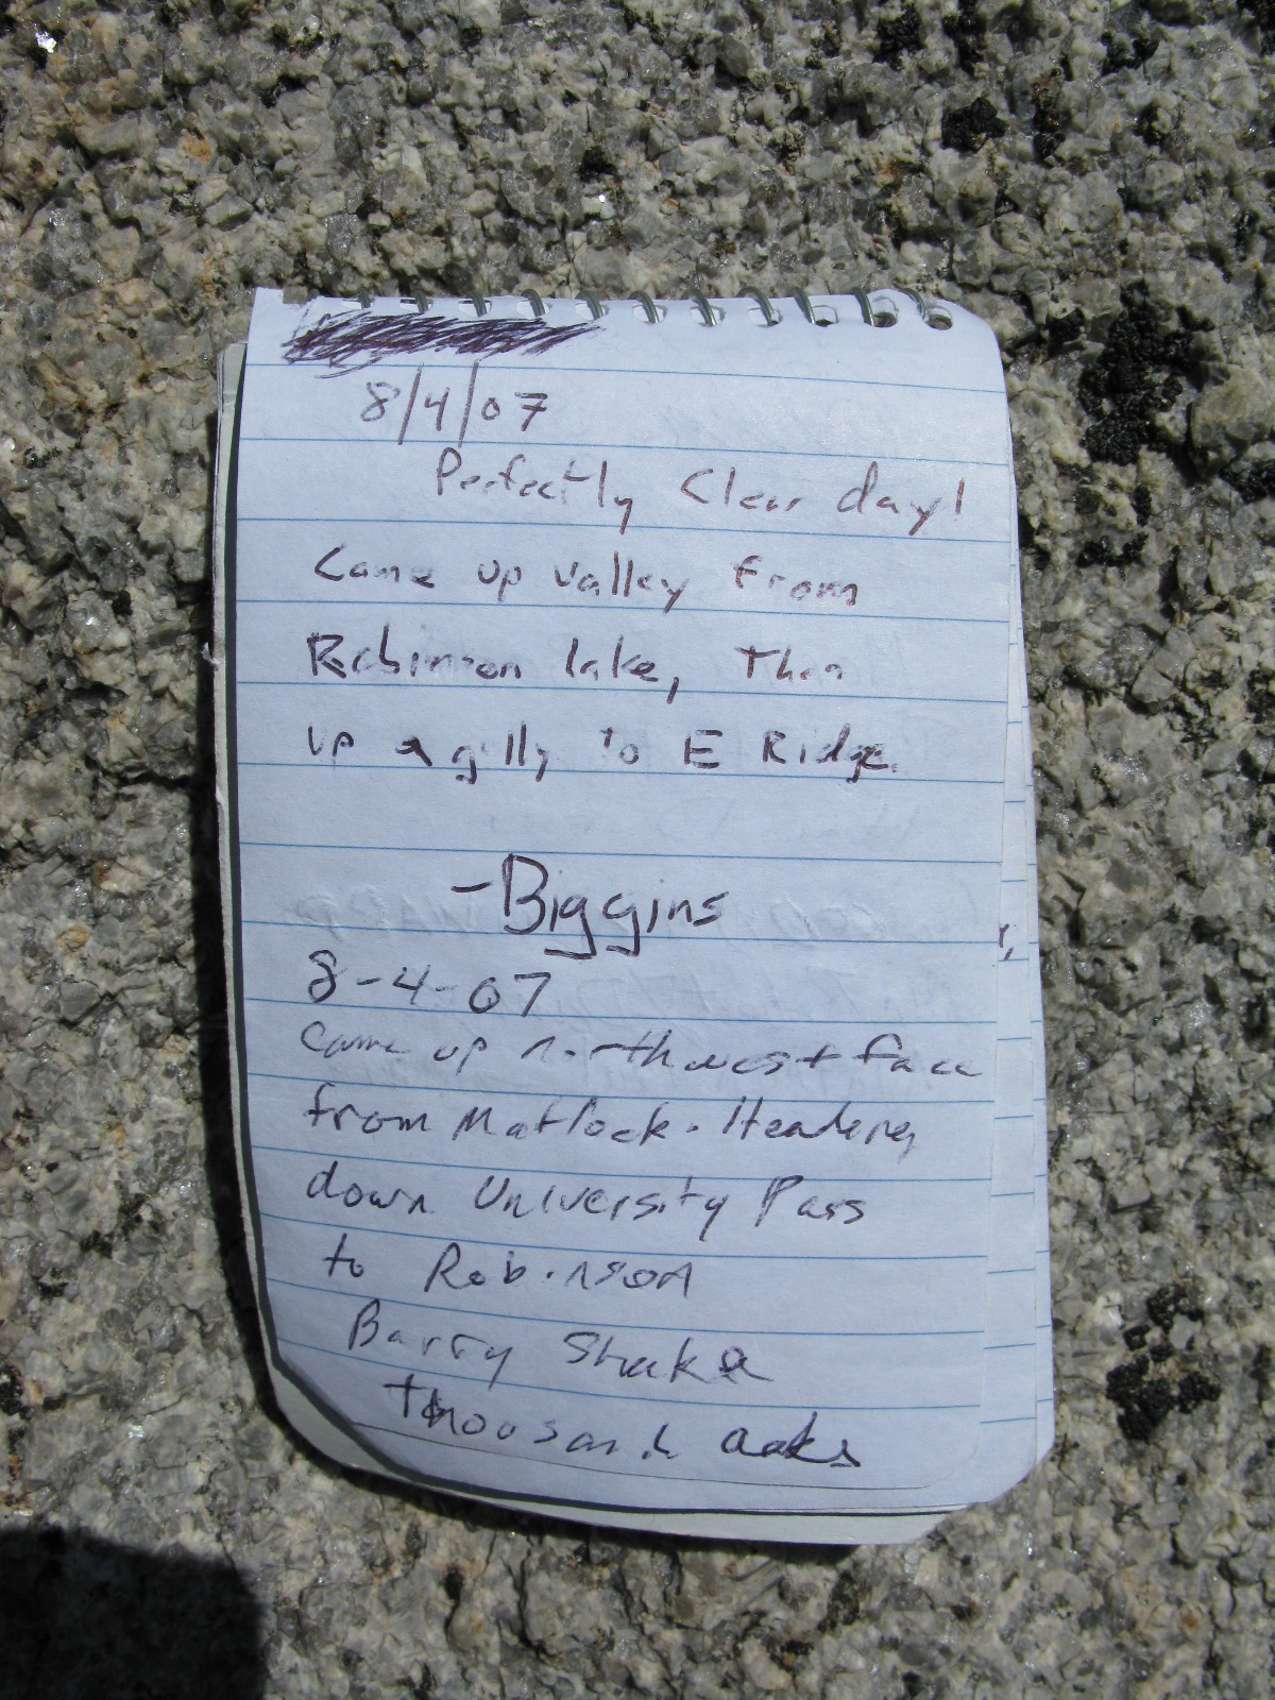 8/4/07
Perfectly Clear day!
Came up valley from
Robinson lake, Then
up a gully to E Ridge.
-Biggins
8-4-07
came up northwest face
from Matlock. Heading
down University Pass
to Robinson
Barry Shaka
Thousand Oaks